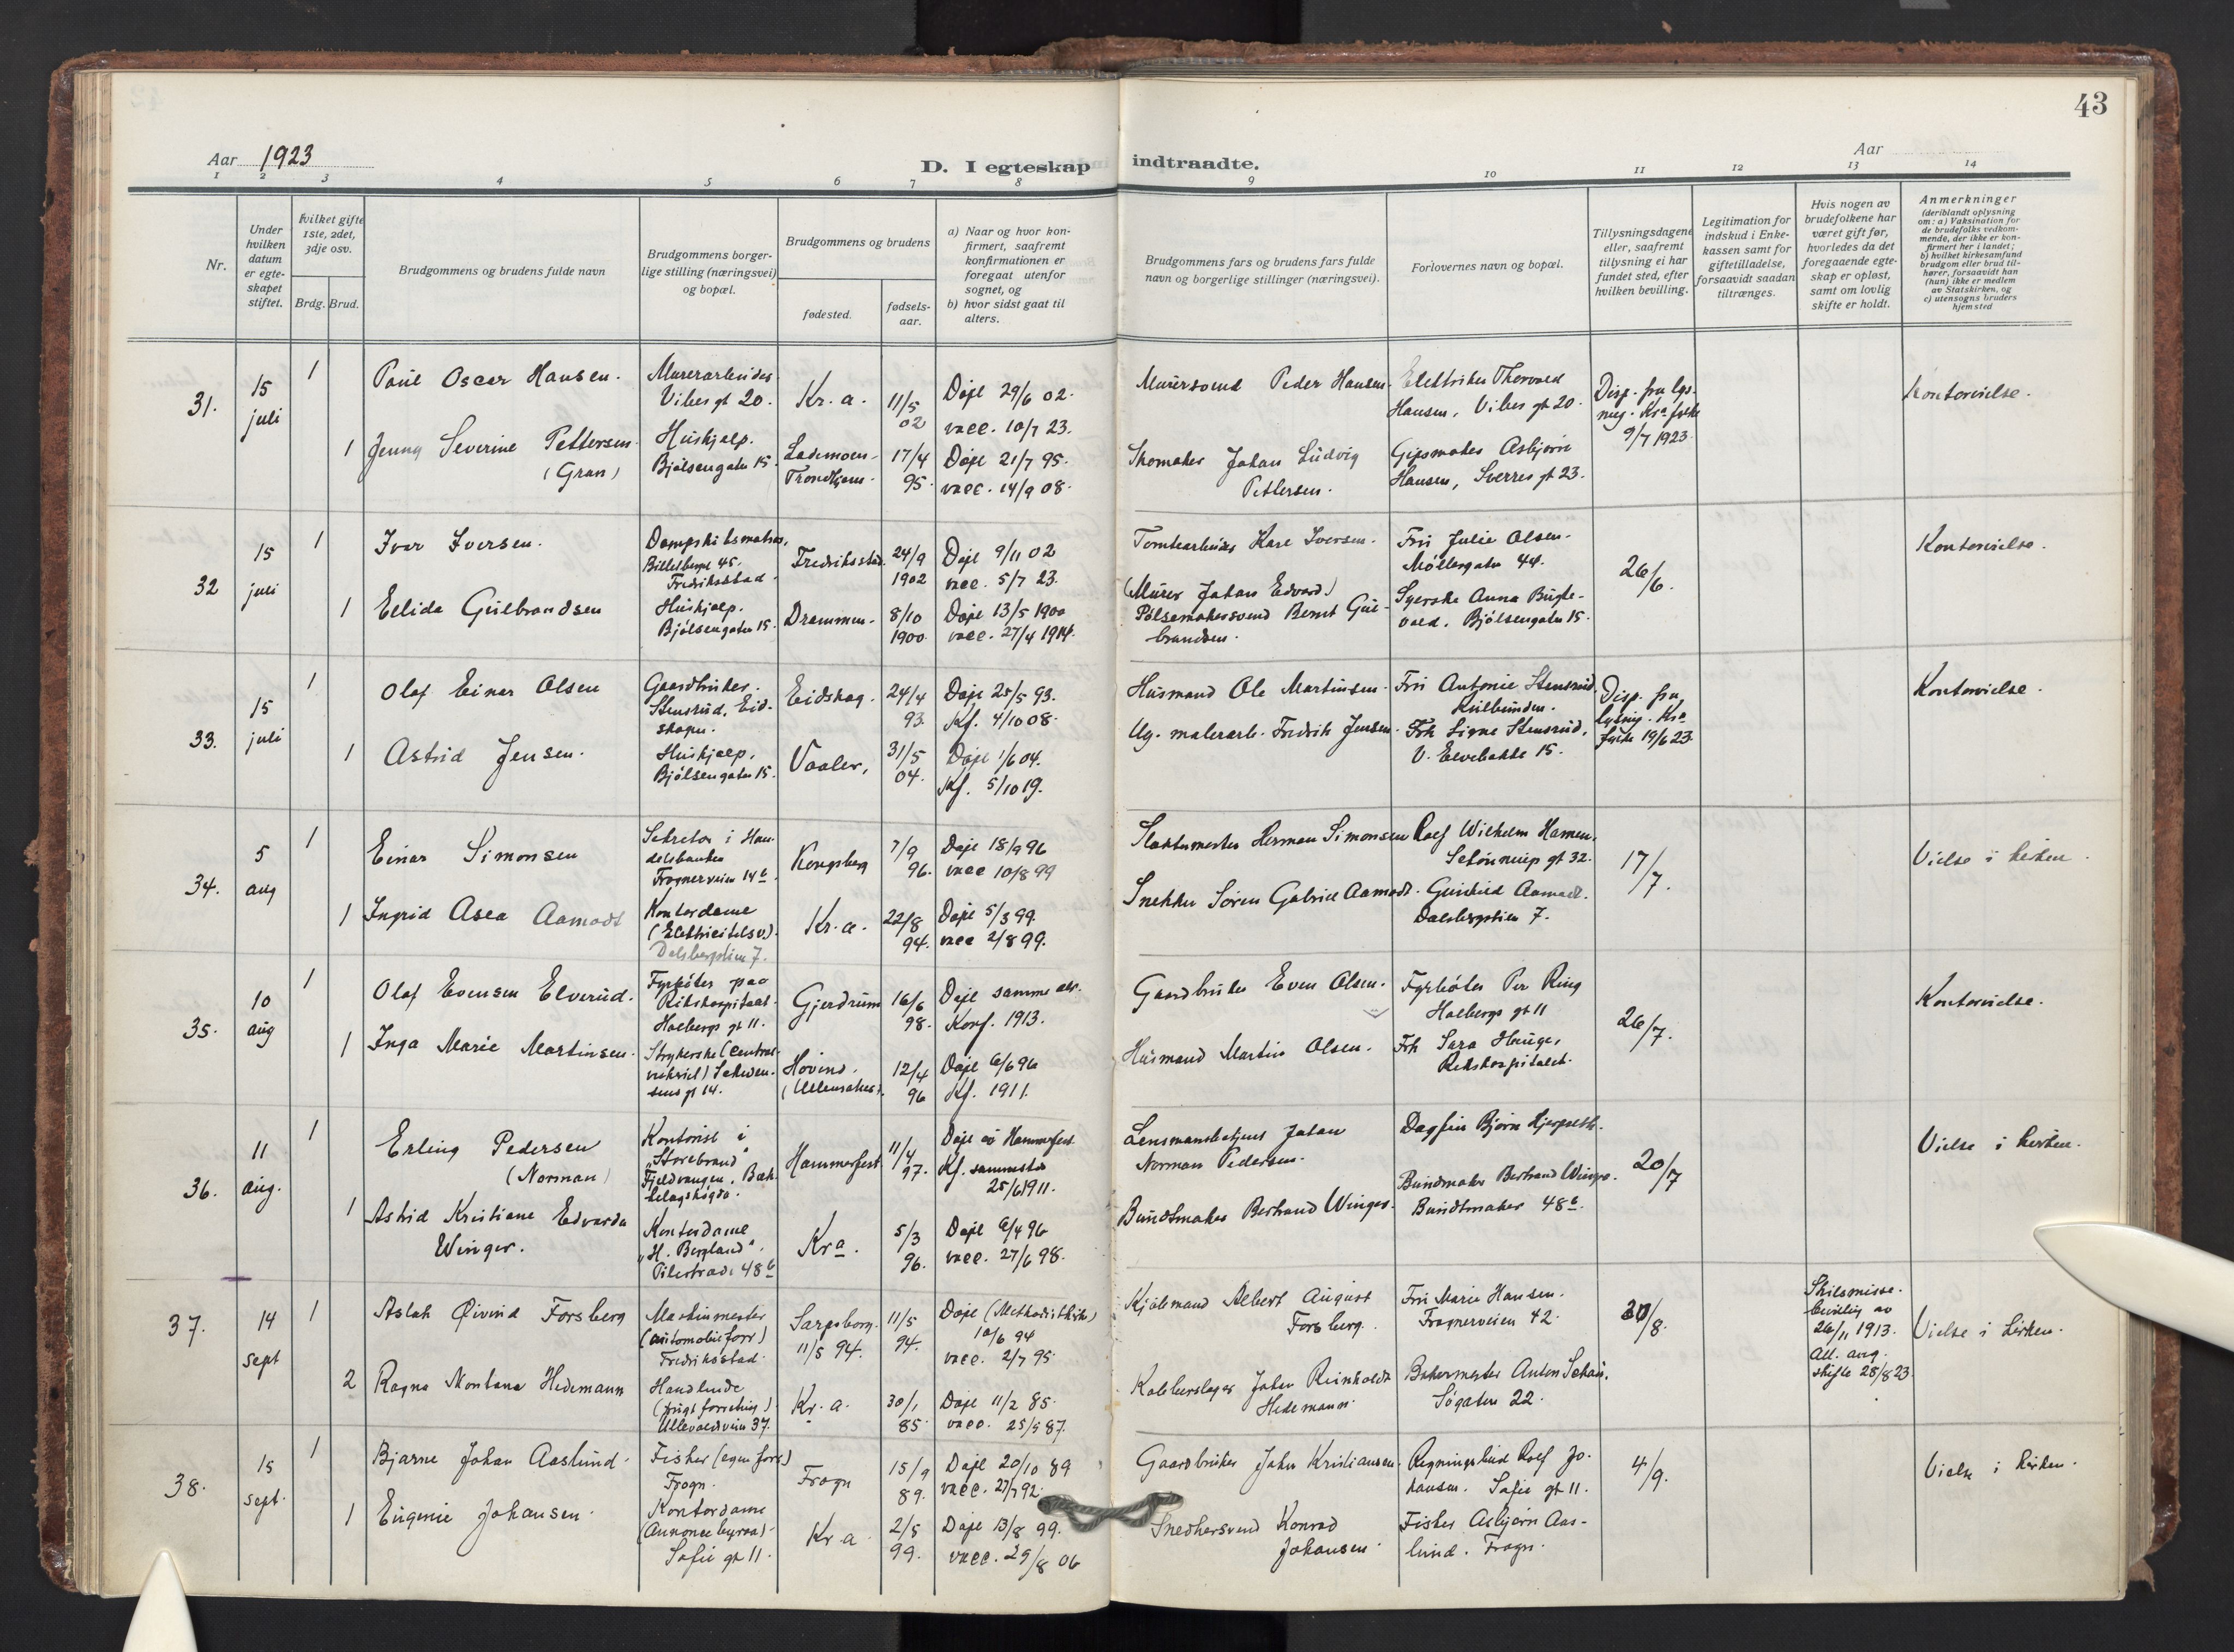 43
Aar 1923
D. I egteskap indtraadte.
Aar
1 2 3 4 5 6 7 8 9 10 11 12 13 14
Nr.
Under hvilken datum er egteskapet stiftet.
Hvilket gifte 1ste, 2det, 3dje osv.
Brdg. Brud.
Brudgommens og brudens fulde navn
Brudgommens borgerlige stilling (næringsvei) og bopæl.
Brudgommens og brudens
fødested.
fødsels-aar.
a) Naar og hvor konfirmert, saafremt konfirmationen er foregaat utenfor sognet, og
b) hvor sidst gaat til alters.
Brudgommens fars og brudens fars fulde navn og borgerlige stillinger (næringsvei).
Forlovernes navn og bopæl.
Tillysningsdagene eller, saafremt tillysning ei har fundet sted, efter hvilken bevilling.
Legitimation for indskud i Enkekassen samt for giftetilladelse, forsaavidt saadan tiltrænges.
Hvis nogen av brudefolkene har været gift før, hvorledes da det foregaaende egteskap er opløst, samt om lovlig skifte er holdt.
Anmerkninger
(deriblandt oplysning om: a) Vaksination for de brudefolks vedkommende, der ikke er konfirmert her i landet; b) hvilket kirkesamfund brudgom eller brud tilhører, forsaavidt han (hun) ikke er medlem av Statskirken, og c) utensogns bruders hjemsted
31.
15 juli
1
Paul Oscar Hansen.
Murerarbeider.
Vibes gt 20.
Kr.a.
11/5 02
Døpt 29/6 02.
vacc. 10/7 23.
Murersvend Peder Hansen.
Elektriker Thorvald
Hansen, Vibes gt 20.
Disp. fra lysning. Kr.a fylke
9/7 1923.
Kontorvielse.
1
Jenny Severine Pettersen
(Gran)
Hushjælp.
Bjølsengaten 15.
Lademoen.
Trondhjem.
17/4 95.
Døpt 21/7 95.
vacc. 14/9 08.
Skomaker Johan Ludvig
Pettersen.
Gipsmaker Asbjørn
Hansen, Sverres gt 23.
32
15 juli
1
Ivar Iversen.
Dampskibsmatros,
45.
Fredriksstad.
Fredriksstad.
24/9 1902
Døpt 9/11 02
vacc. 5/7 23.
Tomtearbeider Karl Iversen.
Fru Julie Olsen.
Møllergaten 44.
26/6.
Kontorvielse.
1
Ellida Gulbrandsen
Hushjælp.
Bjølsengaten 15.
Drammen.
8/10 1900.
Døpt 13/5 1900
vacc. 27/4 1914.
(Murer Johan Edvard)
Pølsemakersvend Bernt Gulbrandsen.
Syerske Anna
Bjølsengaten 15.
33.
15 juli
1
Olaf Einar Olsen
Gaardbruker.
Stensrud, Eidskogen.
Eidskog.
24/4 93.
Døpt 25/5 93.
Kf. 4/10 08.
Husmand Ole Martinsen.
Fru Antonie Stensrud
Disp. fra
lysning. Kr.a
fylke 19/6 23.
Kontorvielse.
1
Astrid Jensen.
Hushjælp,
Bjølsengaten 15.
Vaaler,
31/5 04.
Døpt 1/6 04.
Kf. 5/10 19.
Ug. malerarb. Fredrik Jensen.
Frk Signe Stensrud,
V. Elvebakke 15.
34.
5 aug
1
Einar Simonsen
Sekretær i Handelsbanken
Frognerveien 14b.
Kongsberg
7/9 96.
Døpt 18/9 96
vacc 10/8 99
Slaktermester Herman Simonsen
Rolf Wilhelm
gt 32.
17/7.
Vielse i kirken.
1
Ingrid Asea Aamodt
Kontordame
(Elektricitetsv.).
Dalsbergstien 7.
Kr.a.
22/8 94.
Døpt 5/3 99.
vacc 2/8 99.
Snekker Søren Gabriel Aamodt.
Gunhild Aamodt.
Dalsbergstien 7.
35.
10 aug
1
Olaf Evensen Elverud.
Fyrbøter paa
Rikshospitalet.
Holbergs gt 11.
Gjerdrum
16/6 98.
Døpt samme aar.
Konf. 1913.
Gaardbruker Even Olsen.
Fyrbøter Per Ring
Holbergs gt 11
26/7.
Kontorvielse.
1
Inga Marie Martinsen.
Strykerske
gt 14.
Hovind.
(Ullensaker).
12/4 96
Døpt 6/6 96
Kf. 1911.
Husmand Martin Olsen.
Frk Sara Hauger,
Rikshospitalet.
36.
11 aug.
1
Erling Pedersen
(Norman)
Kontorist i
"Storebrand"
Fjeldvangen, Bækkelagshøgda.
Hammerfest
11/4 97.
Døpt i Hammerfest
Kf. sammesteds
25/6 1911.
Lensmansbetjent Johan
Norman Pedersen.
Dagfin Bjørn
20/7
Vielse i kirken.
1
Astrid Kristiane Edvarda
Winger.
Kontordame
"H. Bergland".
Pilestræde 48b
Kra.
5/3 96.
Døpt 6/4 96
vacc. 27/6 98.
Bundtmaker Bertrand Winger.
Bundtmaker Bertrand Winger.
48b.
37.
14 sept
1
Aslak Øivind Forsberg
Maskinmester
(automobilforr)
Fredriksstad.
Sarpsborg.
11/5 94.
11/5 94.
Døpt (Methodistkirke)
10/6 94
vacc. 2/7 95
Kjølemand Albert August
Forsberg.
Fru Marie Hansen.
Frognerveien 42.
30/8.
Skilsmisse.
bevilling av
26/11 1913.
Att. ang.
skifte 28/8 23.
Vielse i kirken.
2
Ragna Montana Hedemann
Handlende
(frugtforretning)
Ullevoldsveien 37.
Kr.a.
30/1 85.
Døpt 11/2 85.
vacc. 25/9 87.
Kobberslager Johan Reinholdt
Hedemann.
Bakermester Anton
Søgaten 22.
38.
15 sept.
1
Bjarne Johan Aaslund.
Fisker (egen forr)
Frogn.
Frogn
15/9 89.
Døpt 20/10 89
vacc. 27/7 92.
Gaardbruker Johan Kristiansen.
Rolf Johansen. Sofie gt 11.
4/9.
Vielse i kirken.
1
Eugenie Johansen.
Kontordame
(Annonce byraa).
Sofie gt 11.
Kr.a.
2/5 99.
Døpt 13/8 99.
vacc. 29/8 06
Snedkersvend Konrad
Johansen.
Fisker Asbjørn Aaslund. Frogn.